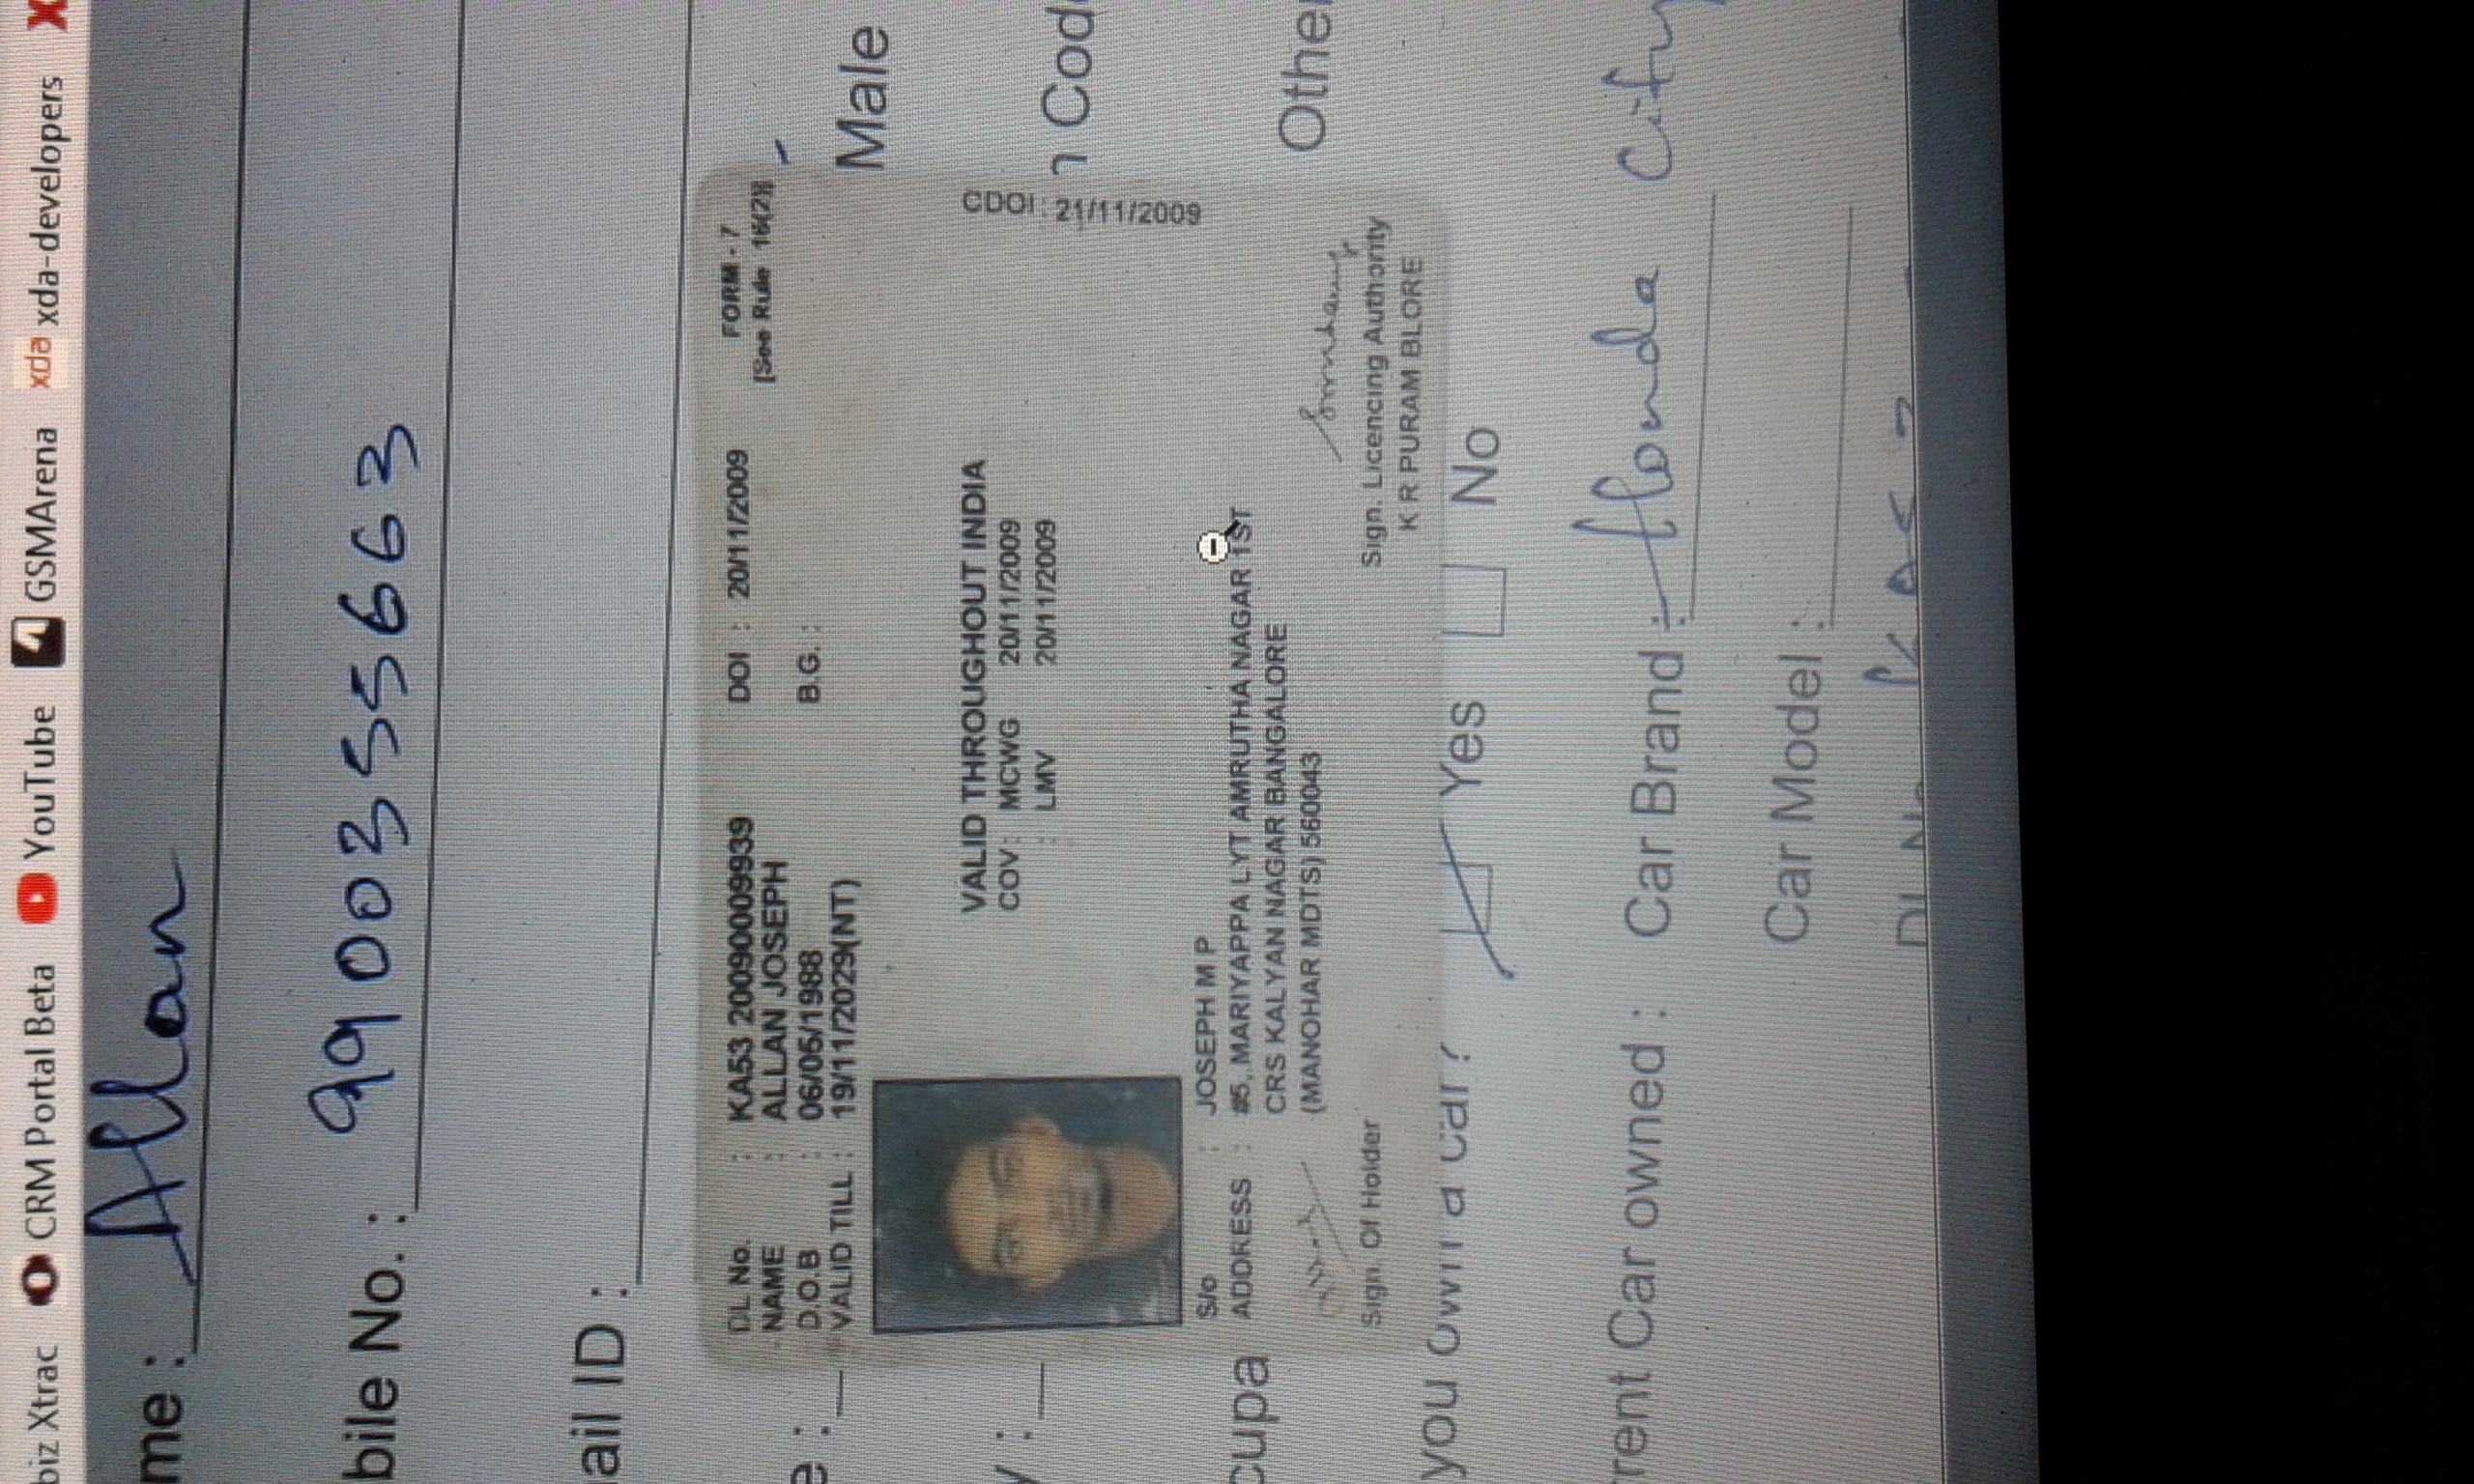 biz Xtrac CRM Portal Beta YouTube GSMArena xda xda-developers
me : Allan
bile No. : 9900355663
ail ID :
DL No. : KA53 20090009939 DOI : 20/11/2009 FORM - 7
NAME : ALLAN JOSEPH [See Rule 16(2)]
D.O.B : 06/05/1988 B.G. :
VALID TILL : 19/11/2029(NT)
e :
Male
VALID THROUGHOUT INDIA
COV: MCWG 20/11/2009
: LMV 20/11/2009
CDOI : 21/11/2009
y :
Cod
S/o : JOSEPH M P
cupa
ADDRESS : #5, MARIYAPPA LYT AMRUTHA NAGAR 1ST
CRS KALYAN NAGAR BANGALORE
(MANOHAR MDTS) 560043
Other
Sign. Of Holder Sign. Licencing Authority
K R PURAM BLORE
you own a car? Yes No
rent Car owned : Car Brand : Honda City
Car Model :
DL No